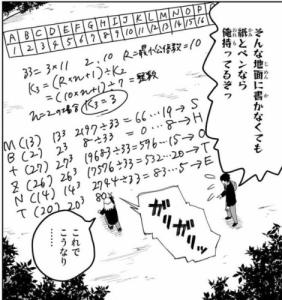 A B C D E F G H I J K L M N O P
1 2 3 4 5 6 7 8 9 10 11 12 13 14 15 16
33=3×11 2,10 R=最小公倍数=10
K₃=(R×n+1)÷K₂
=(10×n+1)÷7=整数
n=2の場合 K₃=3
M(13) 13³ 2197÷33=66…19→S
B(2) 2³ 8÷33=0…8→H
(27) 27³ 19683÷33=596…15→O
Z(26) 26³ 17576÷33=532…20→T
N(14) 14³ 2744÷33=83…5→E
T(20) 20³ 80
そんな地面に書かなくても
紙とペンなら
俺持ってるぞっ
ガリガリッ
これで
こうなり
……